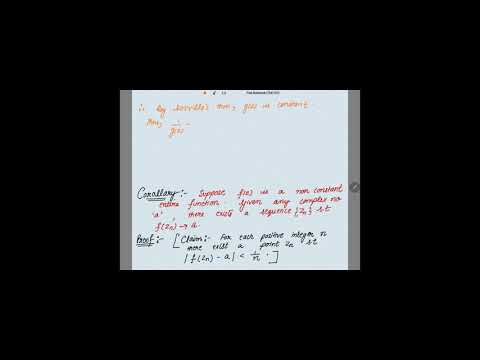 ∴ By Liouville's thm, g(z) is constant.
Thm, 1/g(z) =
Corollary :- Suppose f(z) is a non constant
entire function. Given any complex no
'a', there exists a sequence {Zn} s.t
f(Zn) → a.
Proof :- [Claim :- For each positive integer n
there exist a point Zn s.t
|f(Zn) - a| < 1/n .]